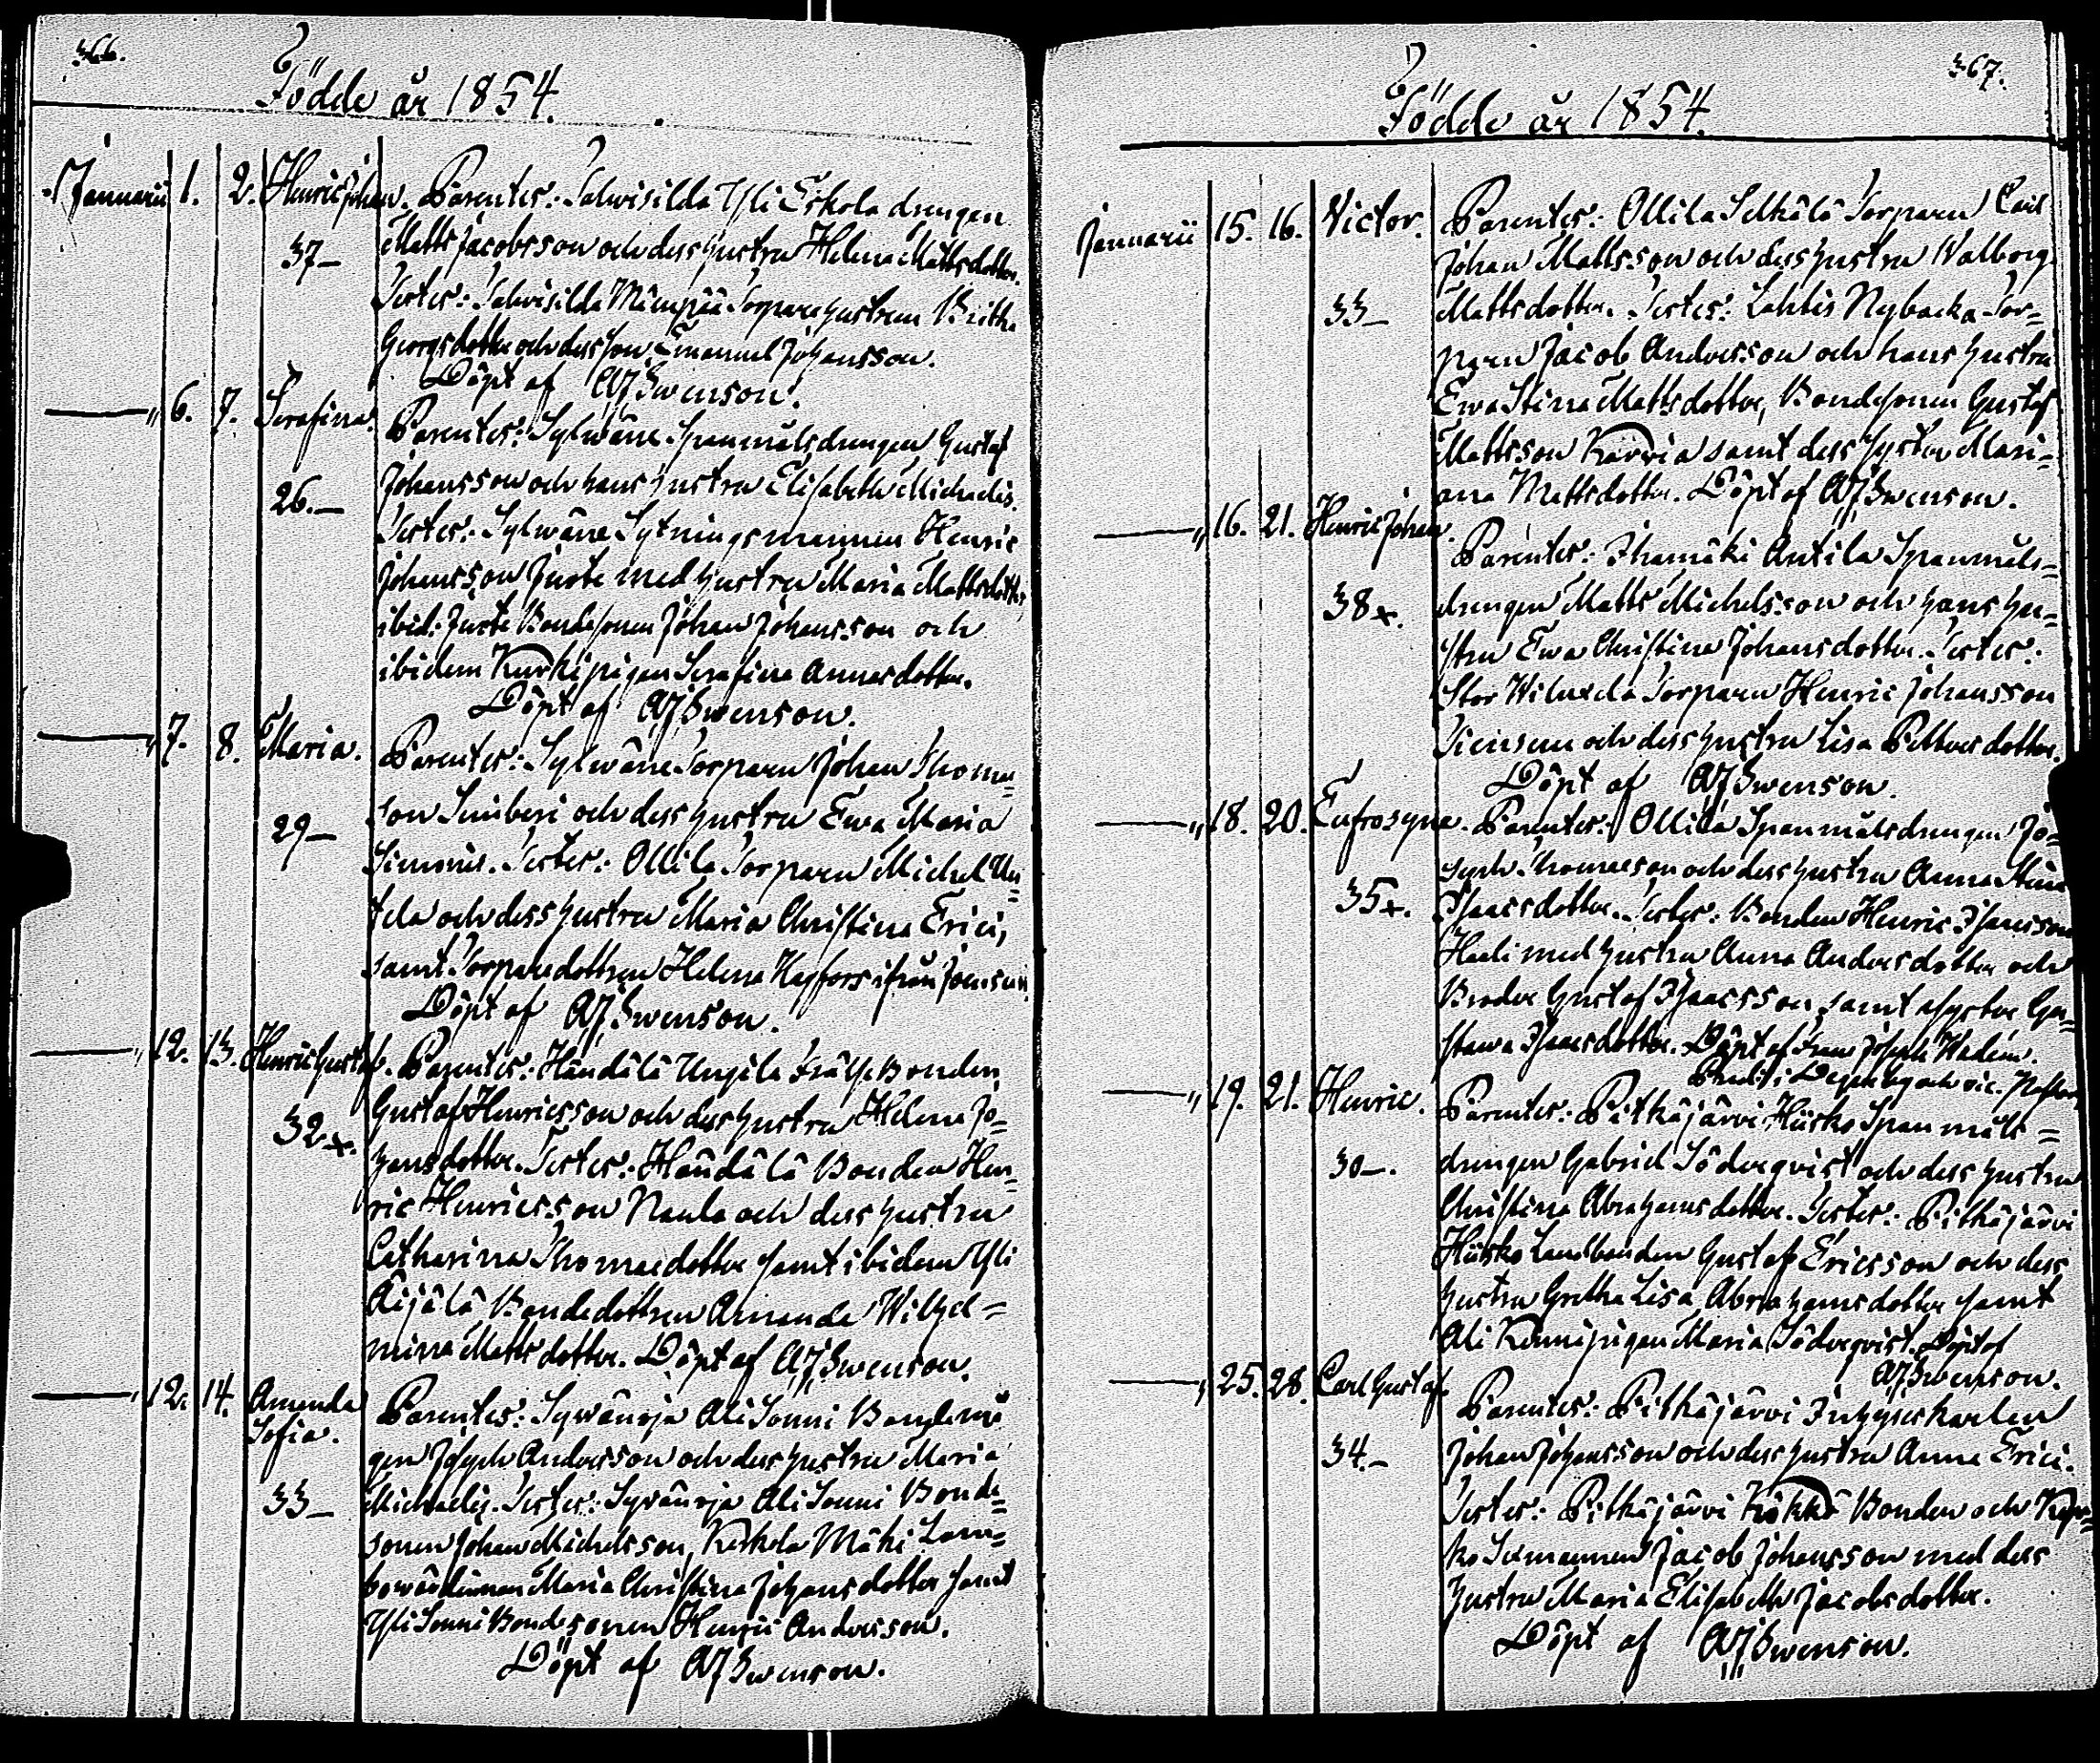 366.
Födde år 1854.
Januarii 1. 2. Henric Johan. Parentes: Salwisilda Yli Eskola drengen
37– Matts Jacobsson och dess hustru Helena Mattsdotter.
Testes: Salwisilda Torpare hustrun Britha
Georgsdotter och dess son Emanuel Johansson.
Döpt af AJSwenson.
—„ 6. 7. Serafina. Parentes: Sylwäne Spanmålsdrengen Gustaf
26.– Johansson och hans hustru Elisabeth Michaelis.
Testes: Sylwäne Sytningsmannen Henric
Johansson Juste med hustru Maria Mattsdotter,
ibid: Juste Bondesonen Johan Johansson och
ibidem Kurki pigan Serafina Annasdotter.
Döpt af AJSwenson.
—„ 7. 8. Maria. Parentes: Sylwäne Torparen Johan Thomas=
29– son och dess hustru Ewa Maria
Simonis. Testes: Ollila Torparen Michel Un=
tela och dess hustru Maria Christina Erici,
samt Torparedottren Helena ifrån Joensuu.
Döpt af AJSwenson.
—„ 12. 13. Henric Gustaf. Parentes: Händälä Ungila Frälse Bonden
32x. Gustaf Henricsson och dess hustru Helena Jo=
hansdotter. Testes: Händälä Bonden Hen=
ric Henricsson Naula och dess hustru
Catharina Thomasdotter samt ibidem Yli
Äijälä Bondedottren Amanda Wilhel=
mina Mattsdotter. Döpt af AJSwenson.
—„ 12. 14. Amanda
Sofia. Parentes: Sywäurja Ali Sonni Bonde
gen Joseph Andersson och dess hustru Maria
33– Michaelis. Testes: Sywäurja Ali Sonni Bonde=
sonen Johan Michelsson, Keskola Mäki
Maria Christina Johansdotter samt
Yli Sonni Bondesonen Henric Andersson.
Döpt af AJSwenson.
367.
Födde år 1854.
Januarii 15. 16. Victor. Parentes: Ollila Selkälä Torparen Carl
Johan Mattsson och dess hustru Walborg
33– Mattsdotter. Testes: Lahtis Nybacka Tor=
paren Jacob Andersson och hans hustru
Ewa Stina Mattsdotter, Bondesonen Gustaf
Mattsson Karvia samt dess syster Mari=
ana Mattsdotter. Döpt af AJSwenson.
—„ 16. 21. Henric Johan. Parentes: Ihamäki Antila Spanmåls=
38x. drengen Matts Michelsson och hans hu=
stru Ewa Christina Johansdotter. Testes:
Stor Torparen Henric Johansson
och dess hustru Lisa Pettersdotter.
Döpt af AJSwenson.
—„ 18. 20. Eufrosyne. Parentes: Ollila Spanmålsdrengen Jo=
seph Thomasson och dess hustru Anna Stina
35x. Isaacsdotter. Testes: Bonden Henric Isaacsson
Haali med hustru Anna Andersdotter och
Broder Gustaf Isaacsson samt syster Gu=
stawa Isaacsdotter. Döpt af Joseph
—„ 19. 21. Henric. Parentes: Pitkäjärvi Hiisko Spanmåls=
30–. drengen Gabriel Söderqvist och dess hustru
Christina Abrahamsdotter. Testes: Pitkäjärvi
Hiisko Landbonden Gustaf Ericsson och dess
hustru Gretha Lisa Abrahamsdotter samt
Ali Kenni pigan Maria Söderqvist. Döpt af
AJSwenson.
—„ 25. 28. Carl Gustaf. Parentes: Pitkäjärvi Inhyseskarlen
34.– Johan Johansson och dess hustru Anna Erici.
Testes: Pitkäjärvi Kökkö Bonden och Kyr=
ko Sexmannen Jacob Johansson med dess
hustru Maria Elisabeth Jacobsdotter.
Döpt af AJSwenson.